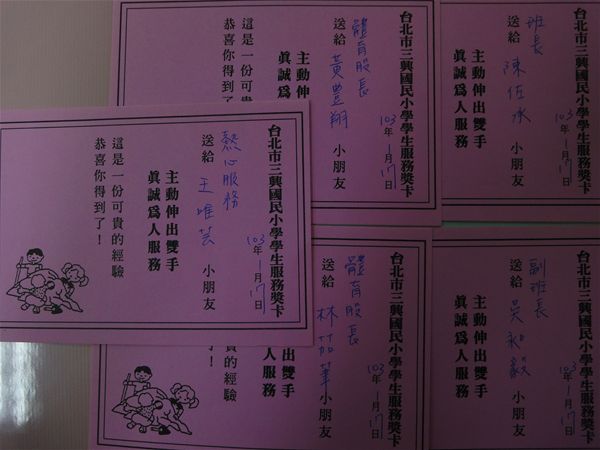 台北市三興國民小學學生服務獎卡
班長
送給 陳佐承 小朋友
103年1月17日
主動伸出雙手
真誠為人服務
台北市三興國民小學學生服務獎卡
體育股長
送給 黃豐翔 小朋友
103年1月17日
主動伸
真誠為
這是一份可貴的經
恭喜你得到了
台北市三興國民小學學生服務獎卡
熱心服務
送給 王唯芸 小朋友
103年1月17日
主動伸出雙手
真誠為人服務
這是一份可貴的經驗
恭喜你得到了！
台北市三興國民小學學生服務獎卡
副班長
送給 吳昶毅 小朋友
103年1月17日
主動伸出雙手
真誠為人服務
台北市三興國民小學學生服務獎卡
體育股長
送給 林茄葦 小朋友
103年1月17日
出雙手
人服務
貴的經驗
了！